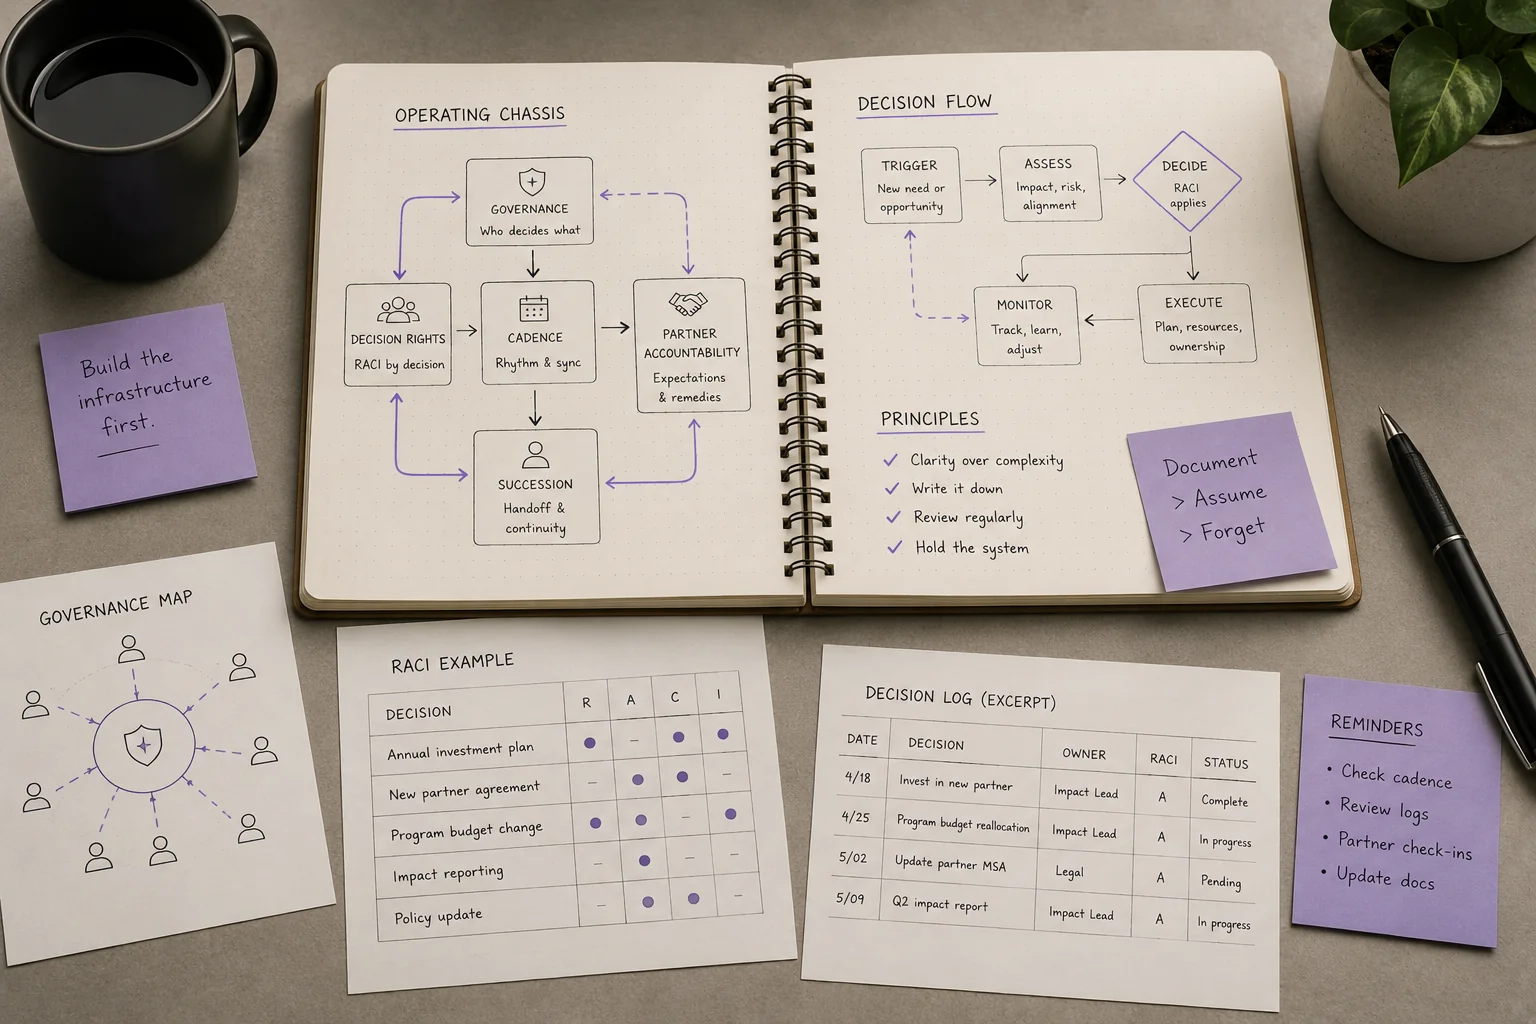 OPERATING CHASSIS
GOVERNANCE
Who decides what
DECISION RIGHTS
RACI by decision
CADENCE
Rhythm & sync
PARTNER
ACCOUNTABILITY
Expectations
& remedies
SUCCESSION
Handoff &
continuity
DECISION FLOW
TRIGGER
New need or
opportunity
ASSESS
Impact, risk,
alignment
DECIDE
RACI
applies
MONITOR
Track, learn,
adjust
EXECUTE
Plan, resources,
ownership
PRINCIPLES
✓ Clarity over complexity
✓ Write it down
✓ Review regularly
✓ Hold the system
Document
> Assume
> Forget
Build the
infrastructure
first.
GOVERNANCE MAP
RACI EXAMPLE
DECISION R A C I
Annual investment plan ● – ● ●
New partner agreement – ● ● –
Program budget change ● ● – ●
Impact reporting – ● – –
Policy update – ● ● –
DECISION LOG (EXCERPT)
DATE DECISION OWNER RACI STATUS
4/18 Invest in new partner Impact Lead A Complete
4/25 Program budget reallocation Impact Lead A In progress
5/02 Update partner MSA Legal A Pending
5/09 Q2 impact report Impact Lead A In progress
REMINDERS
• Check cadence
• Review logs
• Partner check-ins
• Update docs